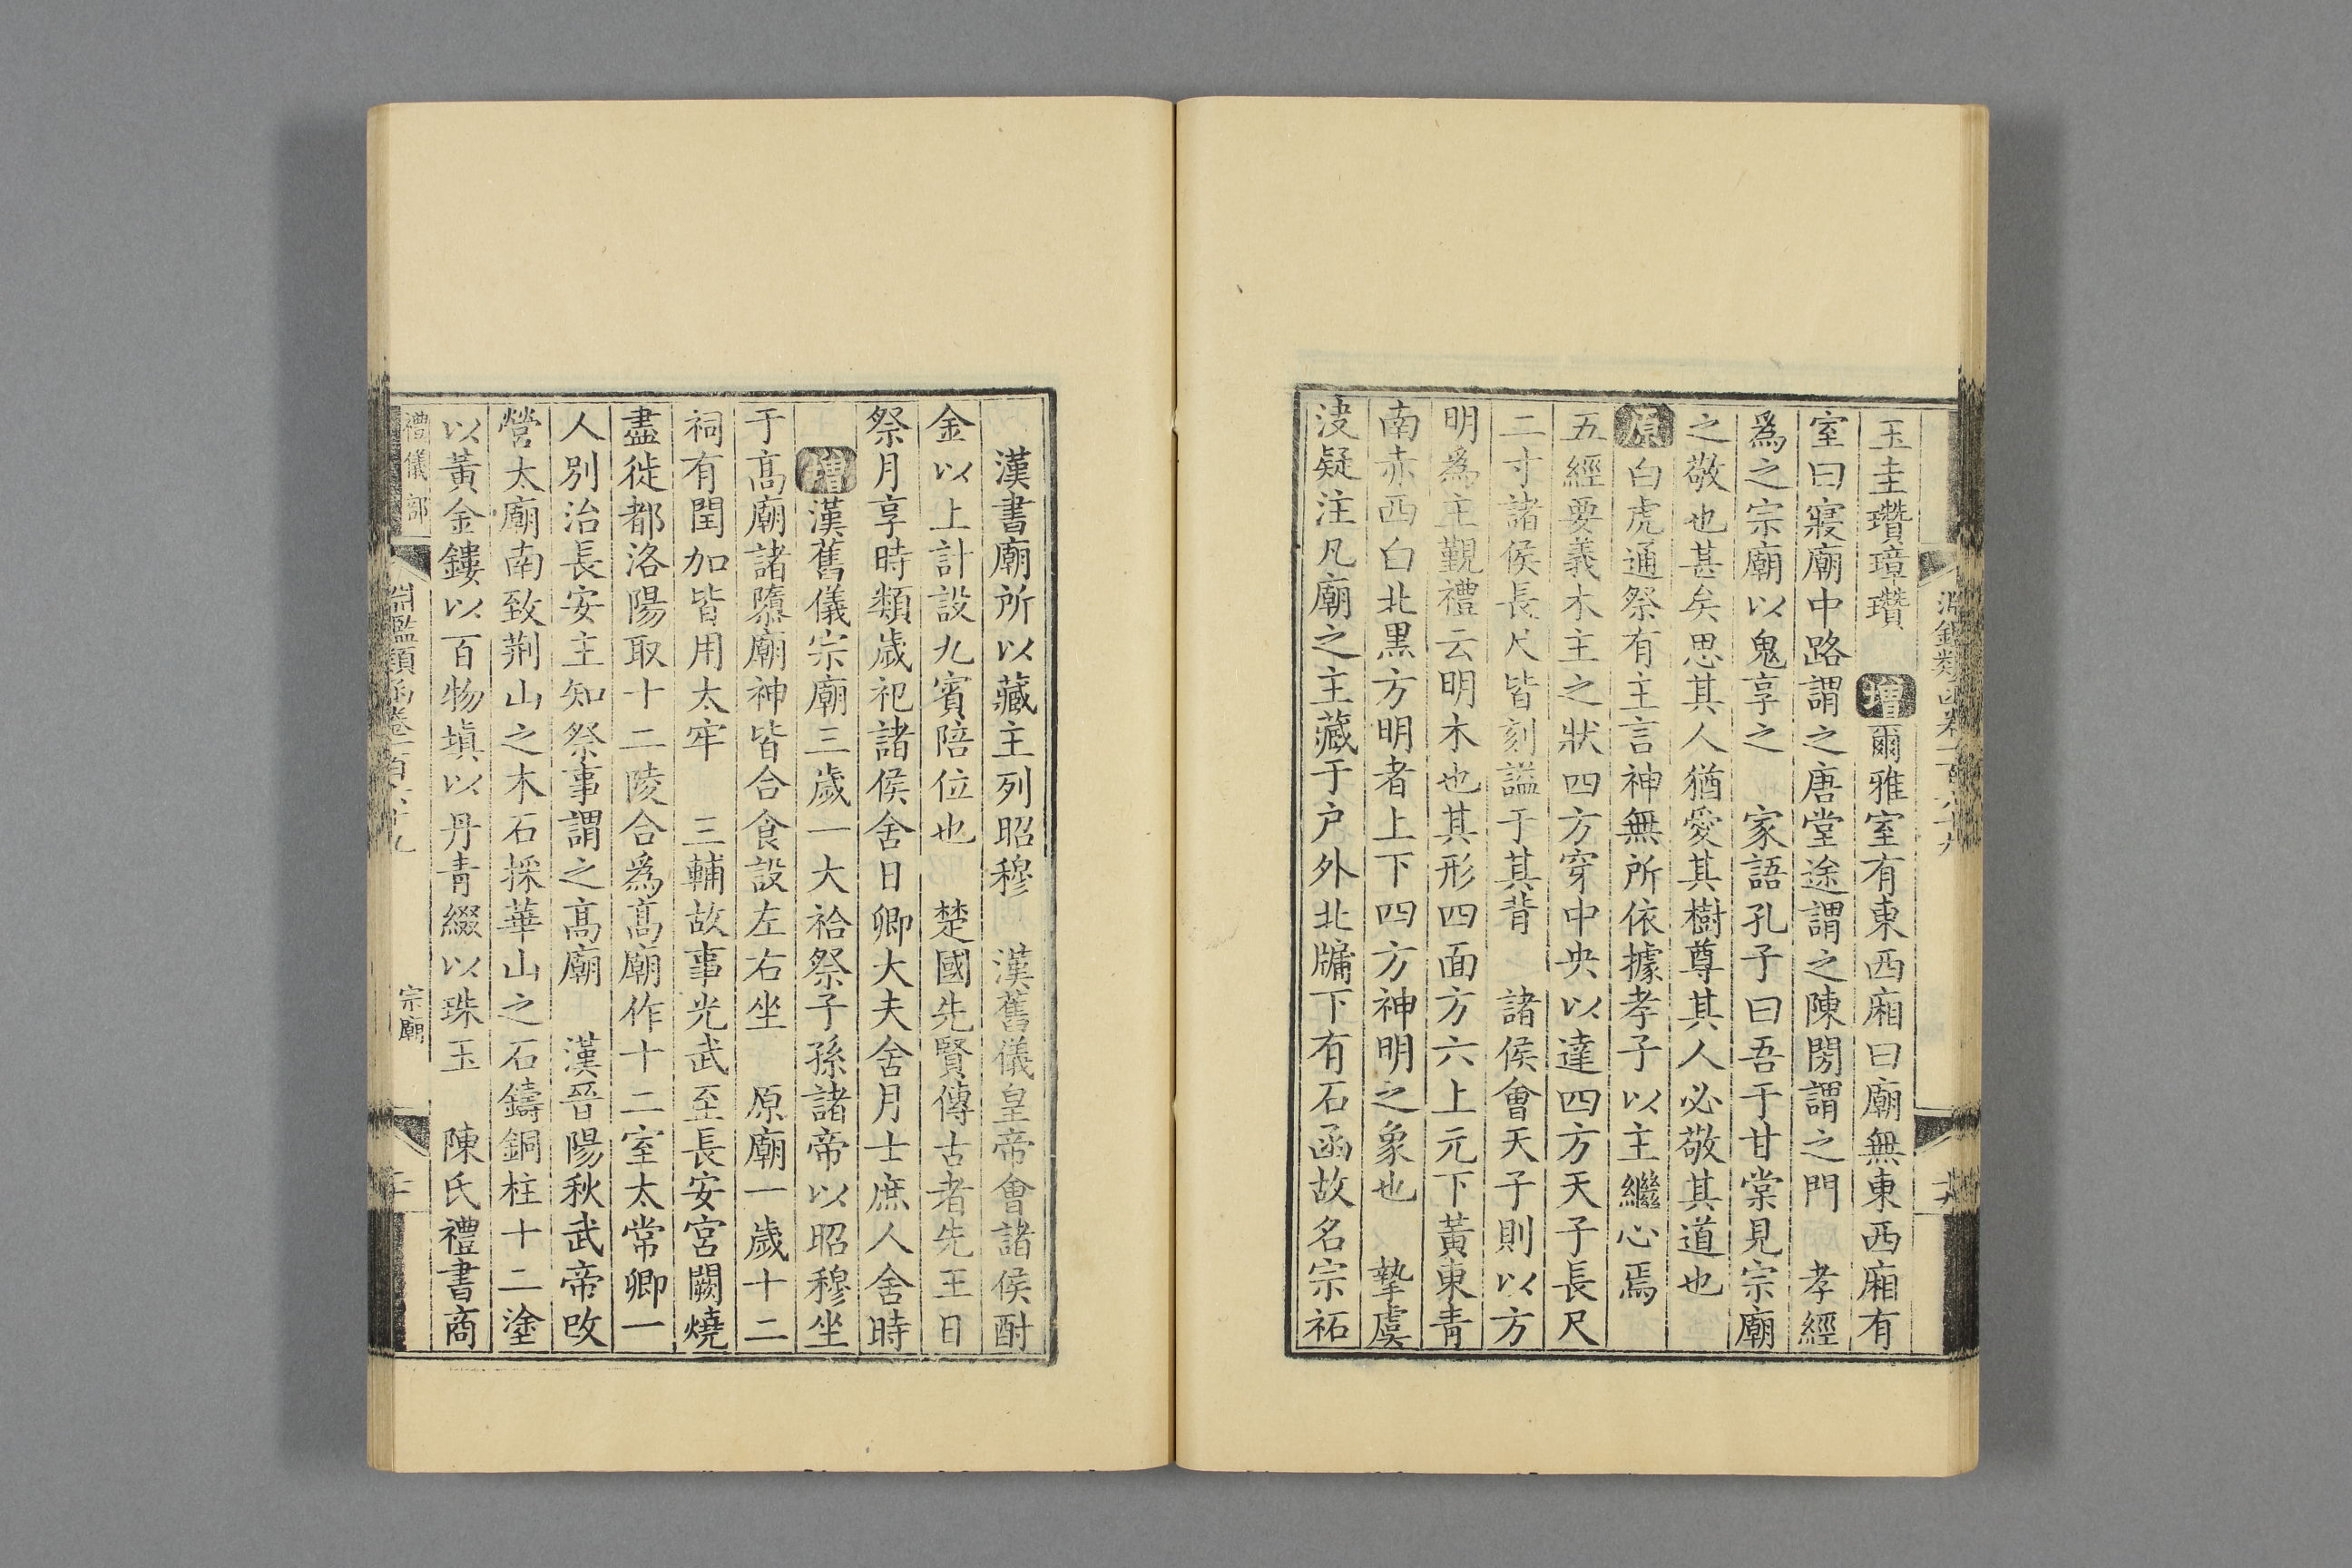 玉圭瓚璋瓚 增爾雅室有東西廂曰廟無東西廂有
室曰寢廟中路謂之唐堂途謂之陳閍謂之門 孝經
爲之宗廟以鬼享之 家語孔子曰吾于甘棠見宗廟
之敬也甚矣思其人猶愛其樹尊其人必敬其道也
原白虎通祭有主言神無所依據孝子以主繼心焉
五經要義木主之狀四方穿中央以達四方天子長尺
二寸諸侯長尺皆刻謚于其背 諸侯會天子則以方
明爲主觀禮云明木也其形四面方六上元下黃東青
南赤西白北黑方明者上下四方神明之象也 摯虞
決疑注凡廟之主藏于户外北牖下有石函故名宗祏
漢書廟所以藏主列昭穆 漢舊儀皇帝會諸侯酎
金以上計設九賓陪位也 楚國先賢傳古者先王日
祭月享時類歲祀諸侯舍日卿大夫舍月士庶人舍時
增漢舊儀宗廟三歲一大祫祭子孫諸帝以昭穆坐
于高廟諸隳廟神皆合食設左右坐 原廟一歲十二
祠有閏加皆用太牢 三輔故事光武至長安宮闕燒
盡徙都洛陽取十二陵合爲高廟作十二室太常卿一
人別治長安主知祭事謂之高廟 漢晉陽秋武帝改
營太廟南致荆山之木石採華山之石鑄銅柱十二塗
以黃金鏤以百物塡以丹青綴以珠玉 陳氏禮書商
禮儀部 淵鑑類函卷一百六十九 宗廟